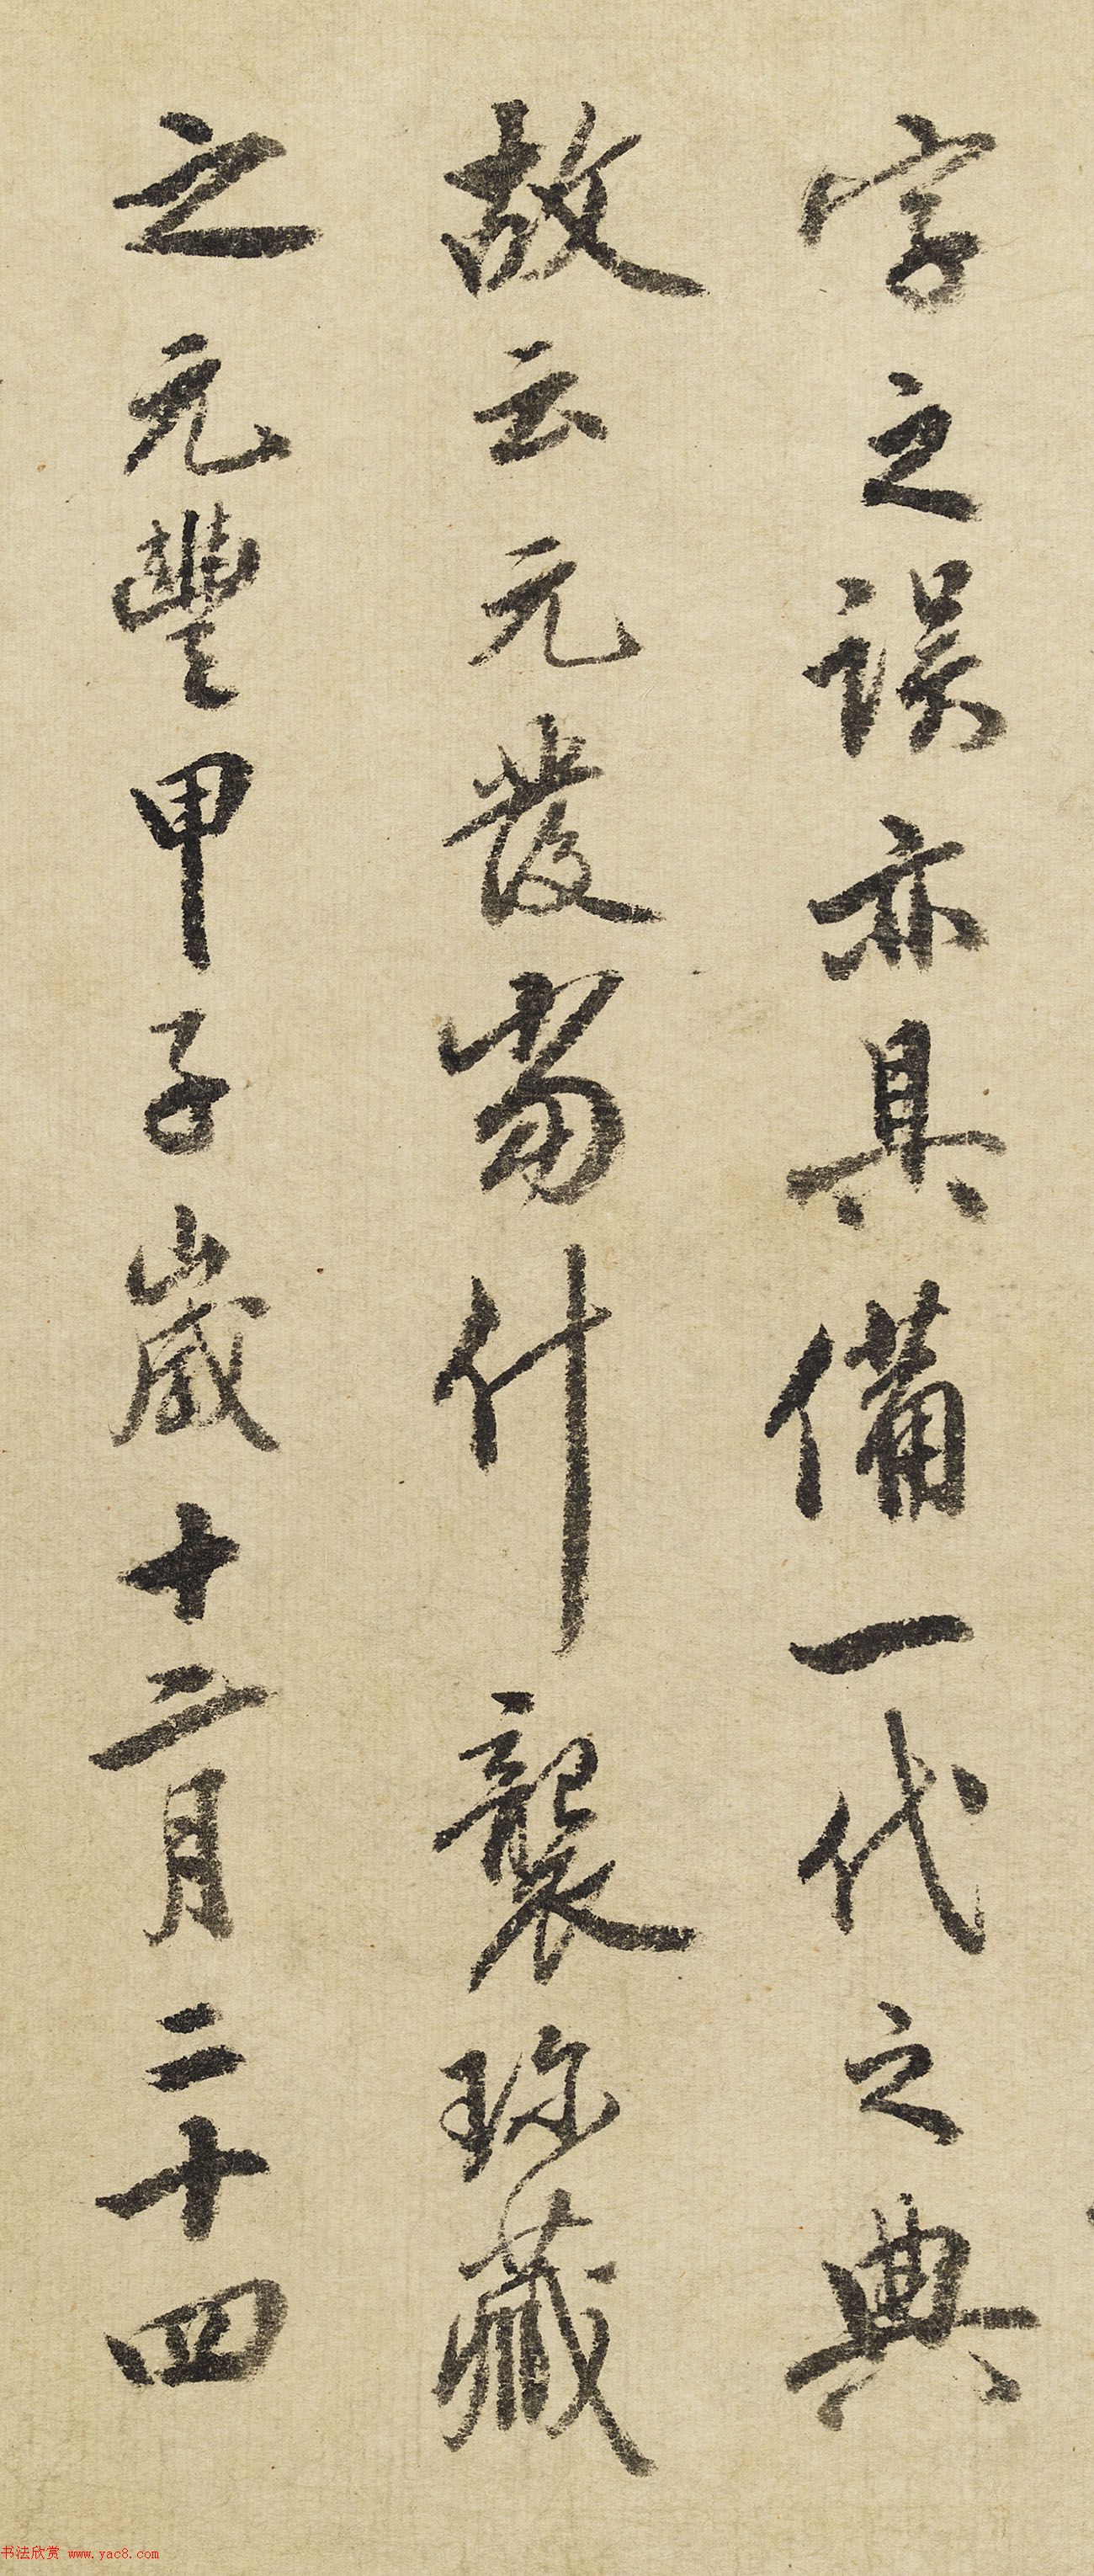 字之誤亦具備一代之典
故云元發當什襲珍藏
之元豐甲子歲十二月二十四
书法欣赏 www.yac8.com